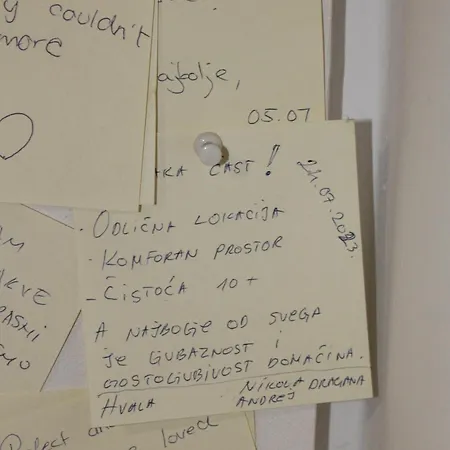 couldn't
more
ajbolje,
05.07
ČAST!
24.07.2023.
- ODLIČNA LOKACIJA
- KOMFORAN PROSTOR
- ČISTOĆA 10+
A NAJBOLJE OD SVEGA
JE LJUBAZNOST I
GOSTOLJUBIVOST DOMAĆINA.
HVALA NIKOLA DRAGANA
ANDREJ
loved